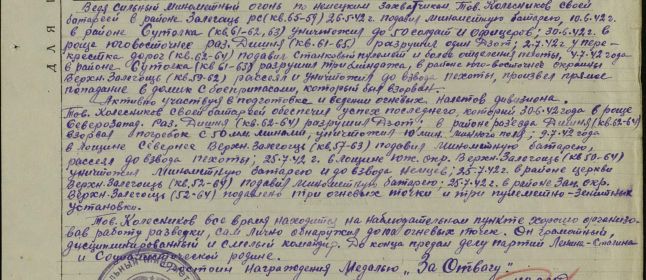 Ведя сильный минометный огонь по немецким захватчикам Тов. Колесников своей
батареей в районе Залегощь рс(кв.65-59) 26.5.42г. подавил минометную батарею, 10.6.42г.
в районе Сутолка (кв 61-62,63) уничтожил до 50 солдат и офицеров; 30.6.42г. в
роще юговосточнее раз. (кв.61-65) разрушил один Дзот; 2.7.42г у пере-
крестка дорог (кв.62-64) подавил станковый пулемет и более отделения пехоты, 4.7.42года
в районе Сутолка (кв 61-63) разрушил три блиндажа, в районе юго-восточнее окраины
Верхн. Залегощь (кв.59-62) рассеял и уничтожил до взвода пехоты, произвел прямое
попадание в домик с боеприпасами, который был взорван.
Активно участвуя в подготовке и ведении огневых налетов дивизиона.
Тов. Колесников своей батареей обеспечил успех последнего, который 30.6.42года в роще
Северозапад. раз. (кв.62-64) разрушил Дзот, в районе раз'езда (кв.62-64)
взорвал погребок с 50мм минами, уничтожил 10 мин. ; 9.7.42года
в лощине Севернее Верхн. Залегощь (кв.57-63) подавил минометную батарею,
рассеял до взвода пехоты; 25.7.42г. в лощине юж. окр. Верхн. Залегощь (кв 50-64)
уничтожил минометную батарею и до взвода немцев; 25.7.42г. в районе церкви
Верхн. Залегощь (кв.52-64) подавил минометную батарею; 25.7.42г. в районе Зап. окр.
Верхн. Залегощь (52-64) подавлено три огневых точки и три пулеметно-зенитных
установки.
Тов. Колесников все время находится на наблюдательном пункте хорошо организо-
вав работу разведки, сам лично обнаружил до 10 огневых точек. Он грамотный,
дисциплинированный и смелый командир. До конца предан делу партии Ленина-Сталина
и Социалистической родине.
Достоин награждения Медалью „За Отвагу"